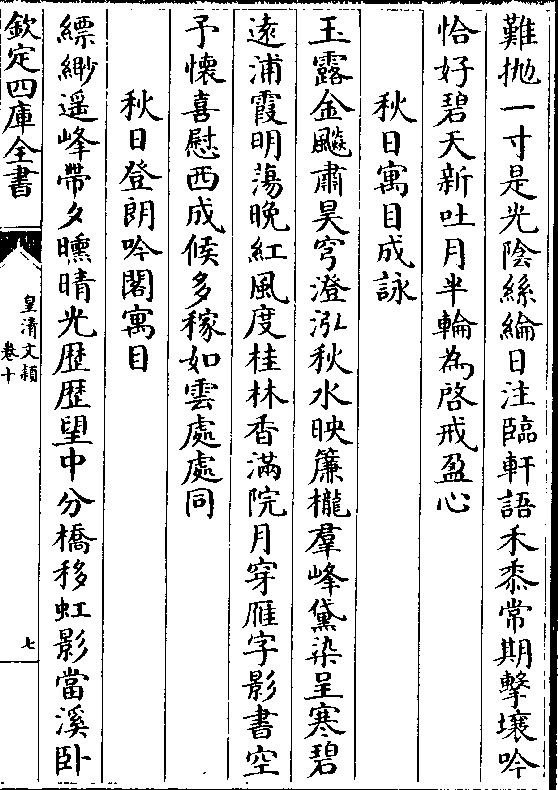 難抛一寸是光陰絲綸日注臨軒語禾黍常期擊壤吟
恰好碧天新吐月半輪為啓戒盈心
秋日寓目成詠
玉露金飈肅昊穹澄泓秋水映簾櫳羣峰黛染呈寒碧
遠浦霞明蕩晚紅風度桂林香滿院月穿雁字影書空
予懷喜慰西成候多稼如雲處處同
秋日登朗吟閣寓目
縹緲遥峰帶夕曛晴光歴歴望中分橋移虹影當溪卧
欽定四庫全書
皇清文頴
卷十
七